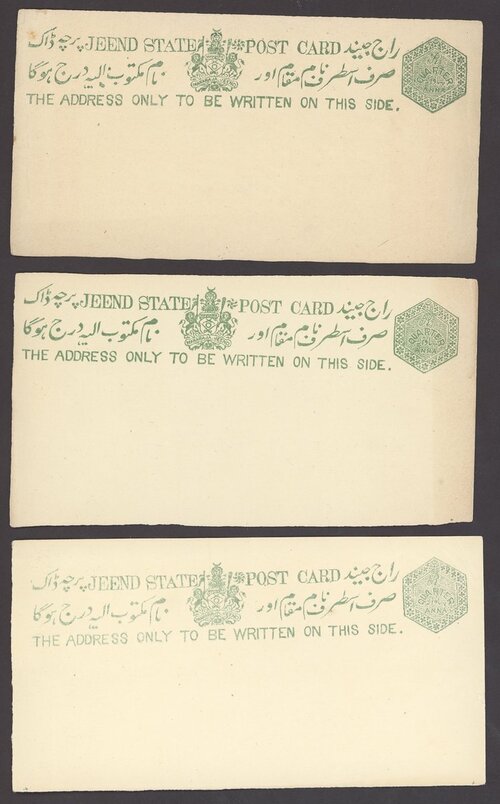 راج جیند POST CARD JEEND STATE پرچہ ڈاک
صرف اسطرف نام مقام اور نام مکتوب الیہ درج ہوگا
THE ADDRESS ONLY TO BE WRITTEN ON THIS SIDE.
QUARTER
ANNA
راج جیند POST CARD JEEND STATE پرچہ ڈاک
صرف اسطرف نام مقام اور نام مکتوب الیہ درج ہوگا
THE ADDRESS ONLY TO BE WRITTEN ON THIS SIDE.
QUARTER
ANNA
راج جیند POST CARD JEEND STATE پرچہ ڈاک
صرف اسطرف نام مقام اور نام مکتوب الیہ درج ہوگا
THE ADDRESS ONLY TO BE WRITTEN ON THIS SIDE.
QUARTER
ANNA